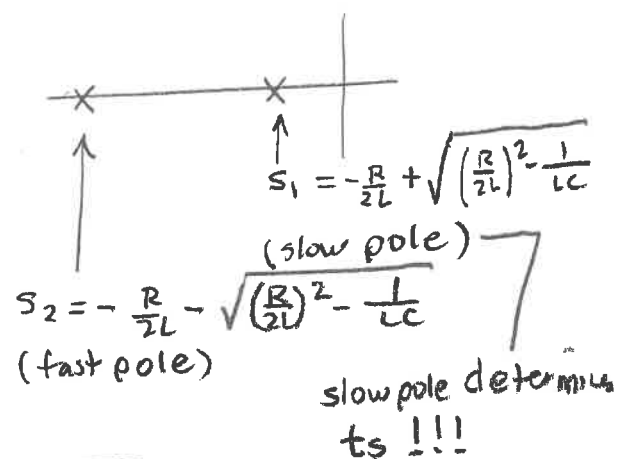 s₁ = -R/2L + √((R/2L)² - 1/LC)
(slow pole)
s₂ = - R/2L - √((R/2L)² - 1/LC)
(fast pole)
slow pole determines
ts !!!